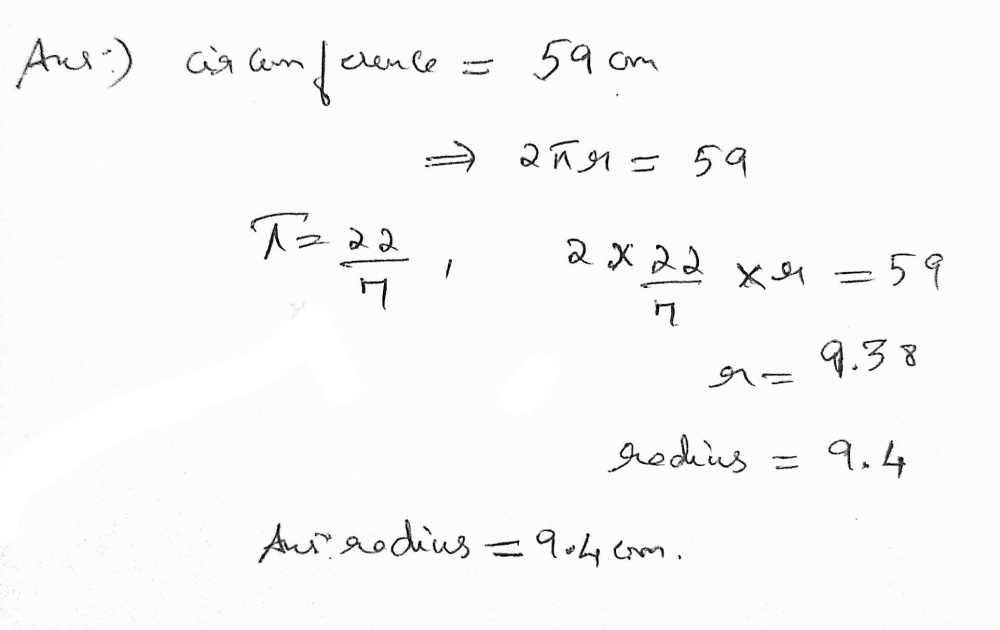 Ans:) circumference = 59 cm
⇒ 2πr = 59
π = 22/7 , 2 × 22/7 × r = 59
r = 9.38
radius = 9.4
Ans: radius = 9.4 cm.